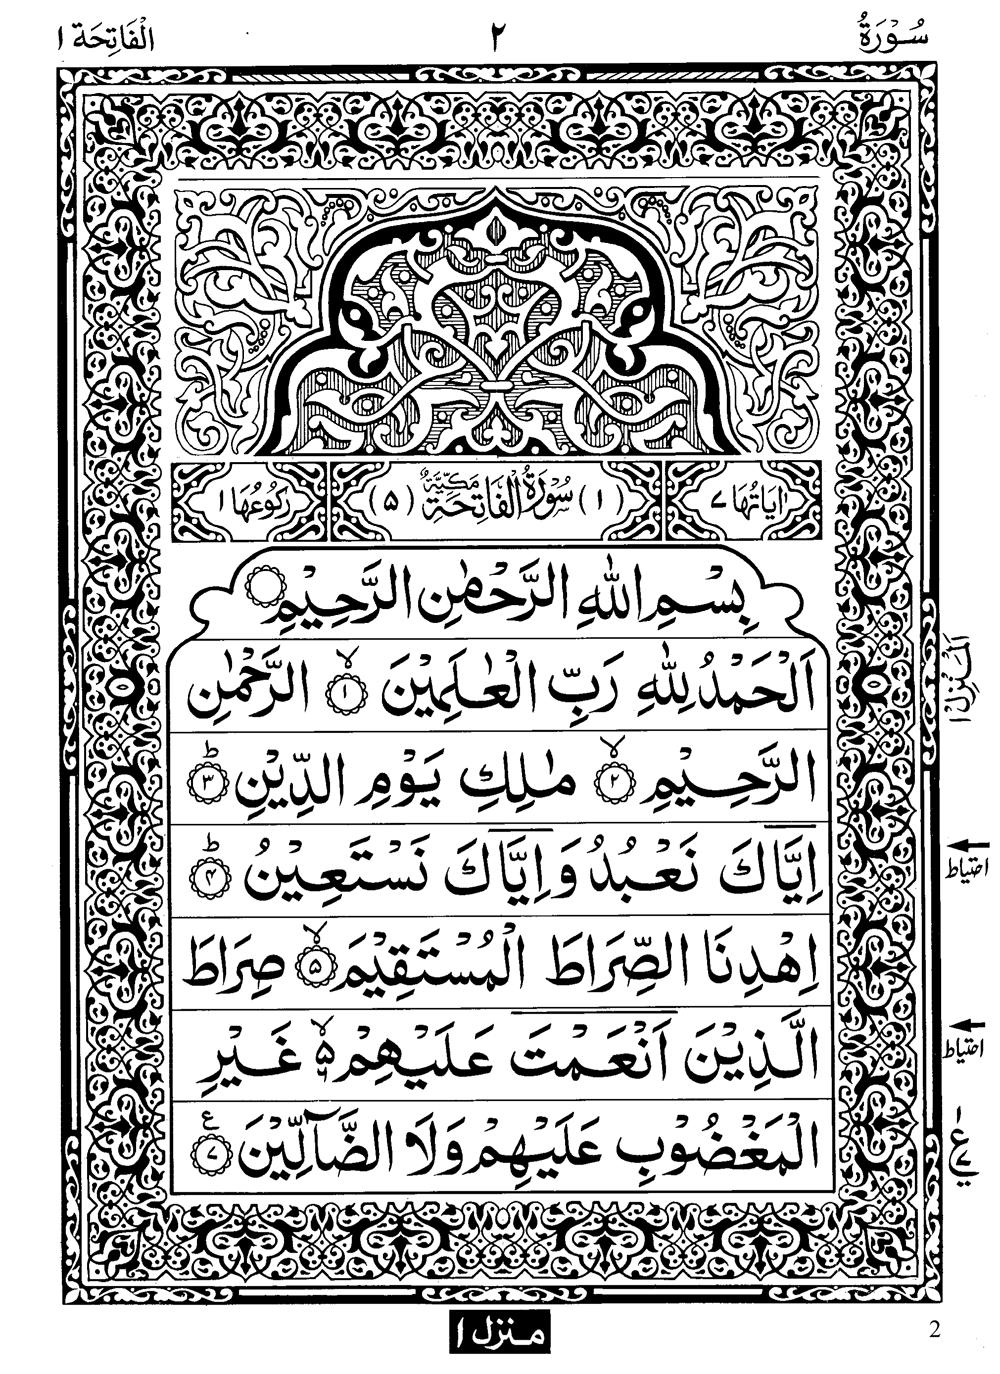 سُوْرَةُ ٢ الْفَاتِحَة ١
اٰيَاتُهَا ٧ (١) سُوْرَةُ الْفَاتِحَةِ مَكِّيَّةٌ (٥) رُكُوْعُهَا ١
بِسْمِ اللّٰهِ الرَّحْمٰنِ الرَّحِيْمِ
اَلْحَمْدُ لِلّٰهِ رَبِّ الْعٰلَمِيْنَ ۙ﴿١﴾ الرَّحْمٰنِ
الرَّحِيْمِ ۙ﴿٢﴾ مٰلِكِ يَوْمِ الدِّيْنِ ؕ﴿٣﴾
اِيَّاكَ نَعْبُدُ وَاِيَّاكَ نَسْتَعِيْنُ ؕ﴿٤﴾
اِهْدِنَا الصِّرَاطَ الْمُسْتَقِيْمَ ۙ﴿٥﴾ صِرَاطَ
الَّذِيْنَ اَنْعَمْتَ عَلَيْهِمْ ۙ٥ ٦ غَيْرِ
الْمَغْضُوْبِ عَلَيْهِمْ وَلَا الضَّآلِّيْنَ ﴿٧﴾ ع
اَلْمَنْزِل ١
احتیاط
احتیاط
١ ع ٧
منزل ١
2